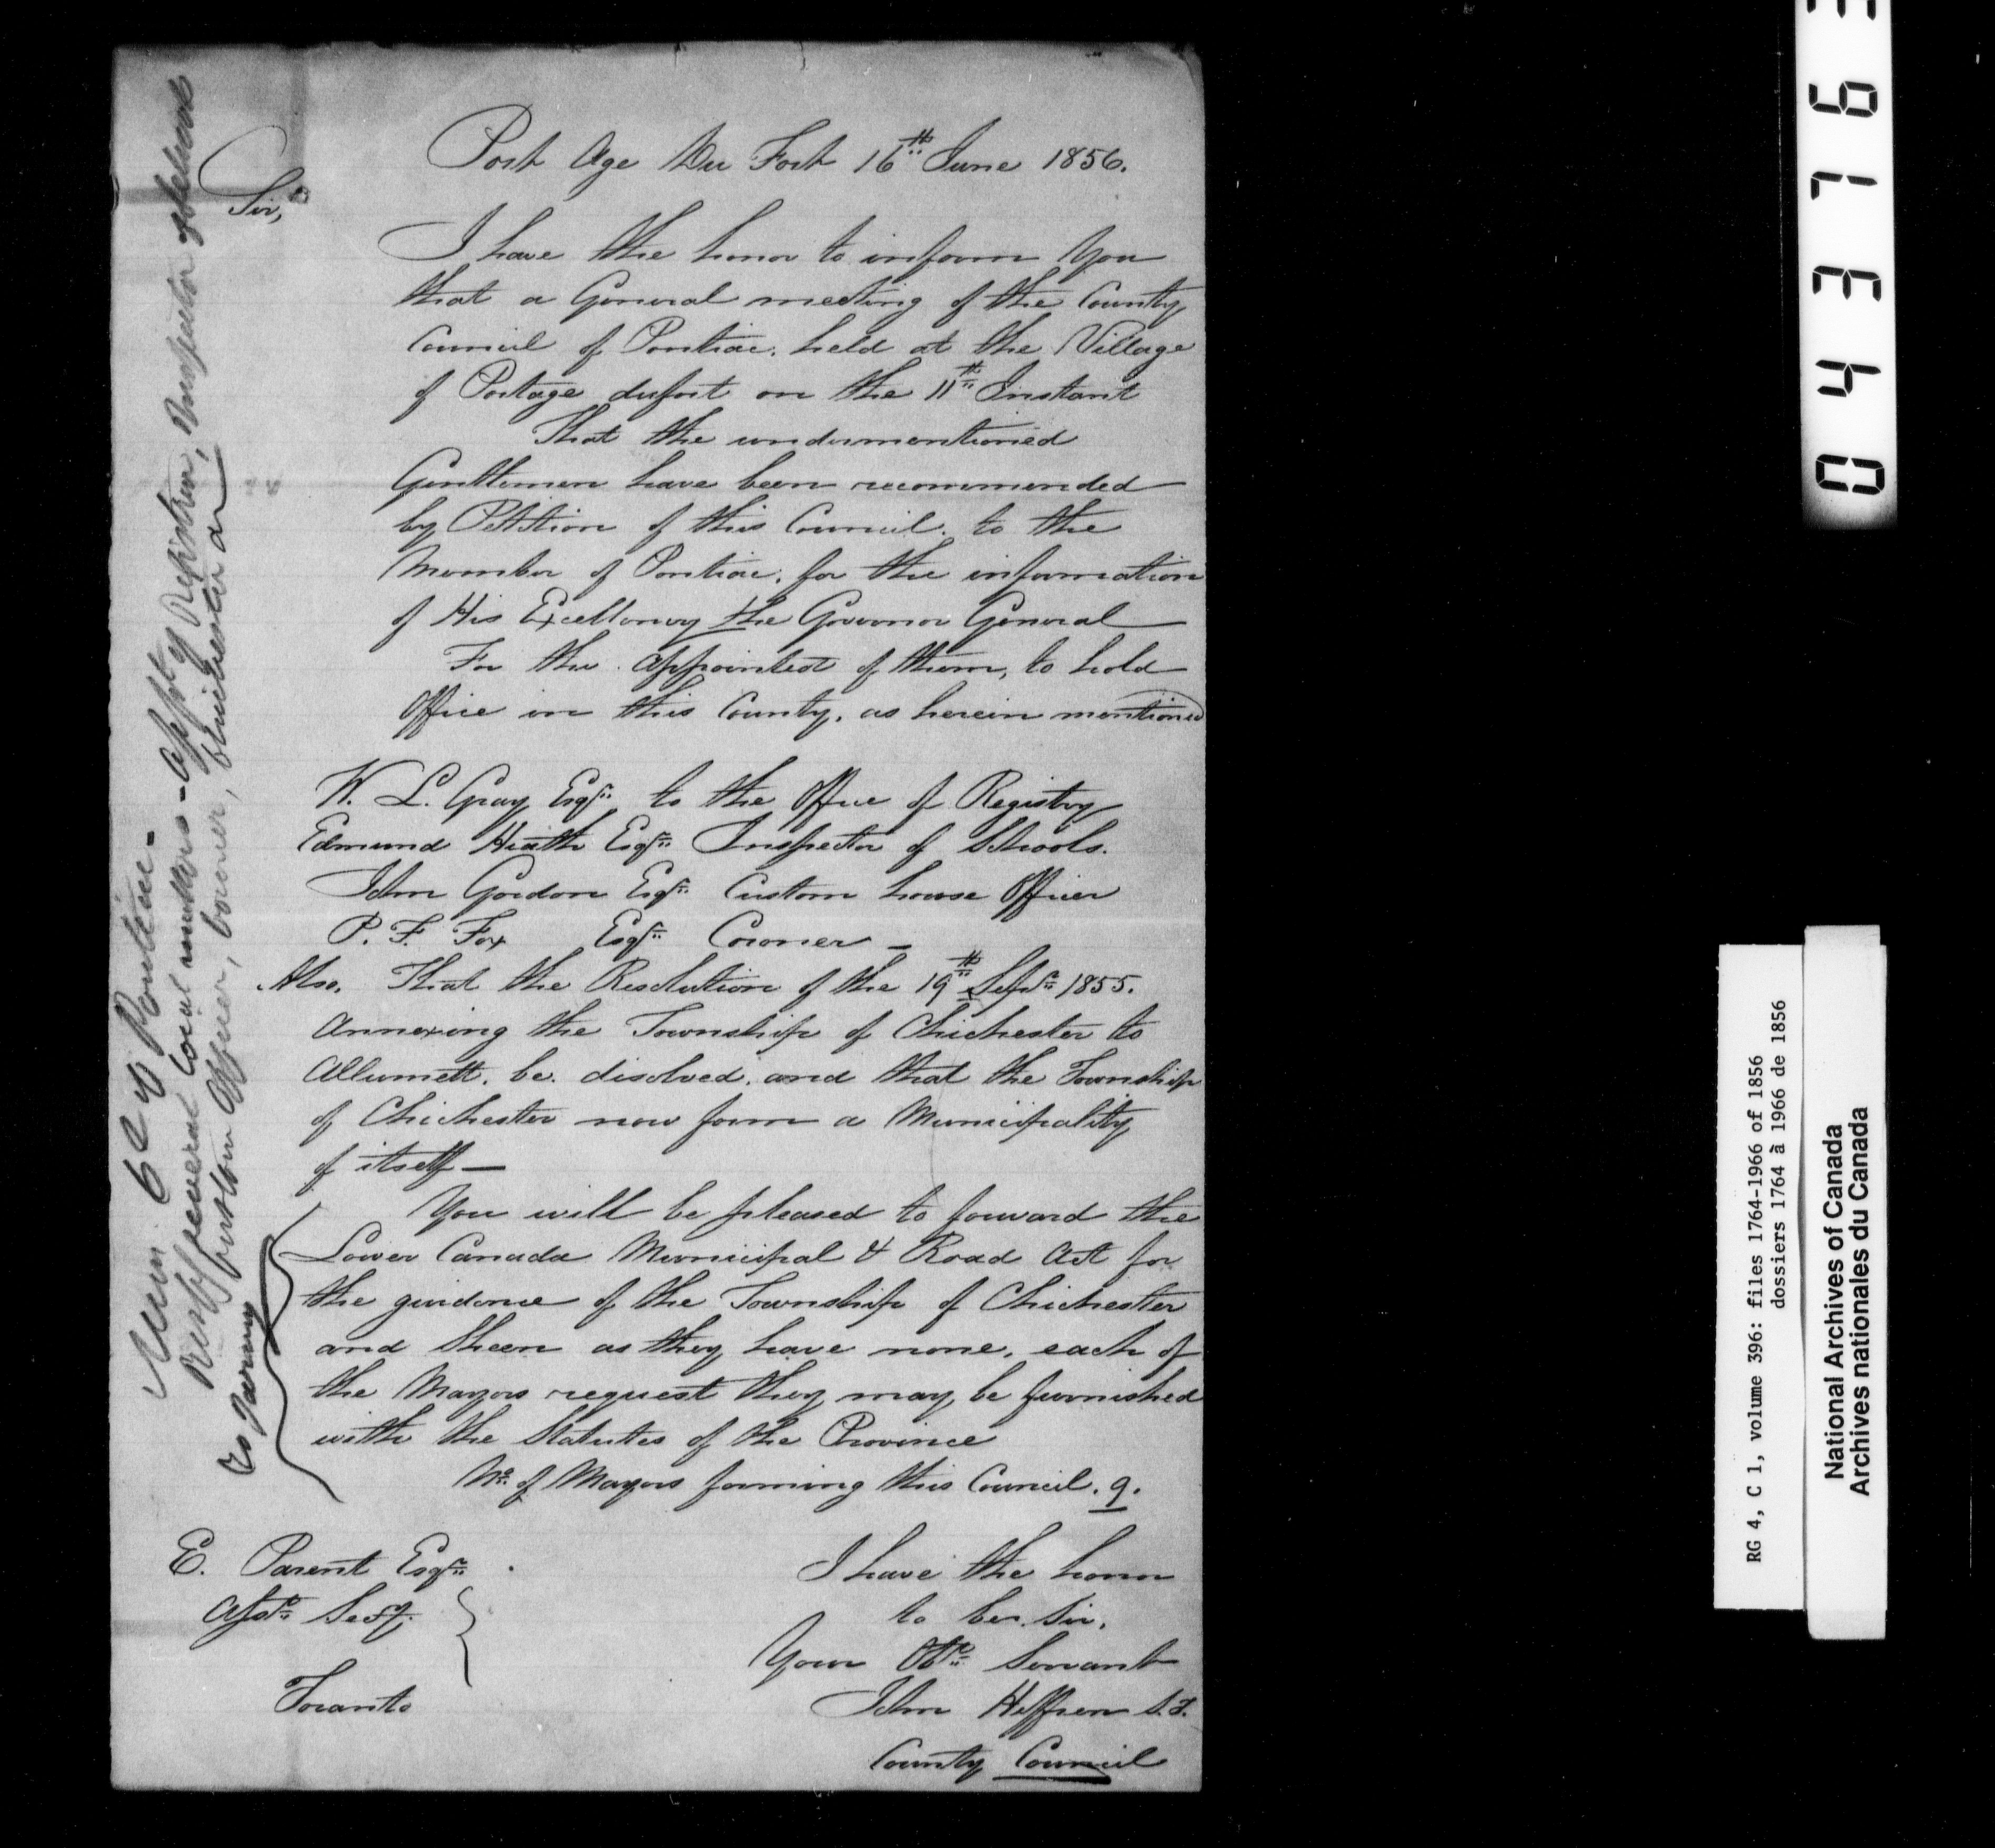 Port Age Du Fort 16th June 1856.
Sir,
I have the honor to inform You
that a General meeting of the County
Council of Pontiac. held at the Village
of Portage dufort on the 11th Instant
That the undermentioned
Gentlemen have been recommended
by Petition of this Council. to the
Member of Pontiac, for the information
of His Excellency the Governor General
For the appointed of them, to hold
Office in this County, as herein mentioned
W. L. Gray Esqr. to the Office of Registry
Edmund Heath Esqr. Inspector of Schools.
John Gordon Esqr. Custom house Officer
P. F. Fox Esqr. Coroner –
Also. That the Resolution of the 19th Sepr. 1855.
Annexing the Township of Chichester to
Allumett. be. disolved. and that the Township
of Chichester now form a Municipality
of itself —
You will be pleased to forward the
Lower Canada Municipal & Road Act for
the guidance of the Township of Chichester
and Sheen as they have none, each of
the Mayors request they may be furnished
with the Statutes of the Province
No. of Mayors forming this Council. 9.
I have the honor
to be. Sir,
Your Obt. Servant
John Heffren S.T.
County Council
E. Parent Esqr.
Asst. Secy.
Toronto
Mun. Cl of Pontiac -
Respg several local matters - appt of Registrar, Inspector of Schools
Custom Officer, Coroner, Chichester &
043763
RG 4, C 1, volume 396: files 1764-1966 of 1856
dossiers 1764 à 1966 de 1856
National Archives of Canada
Archives nationales du Canada